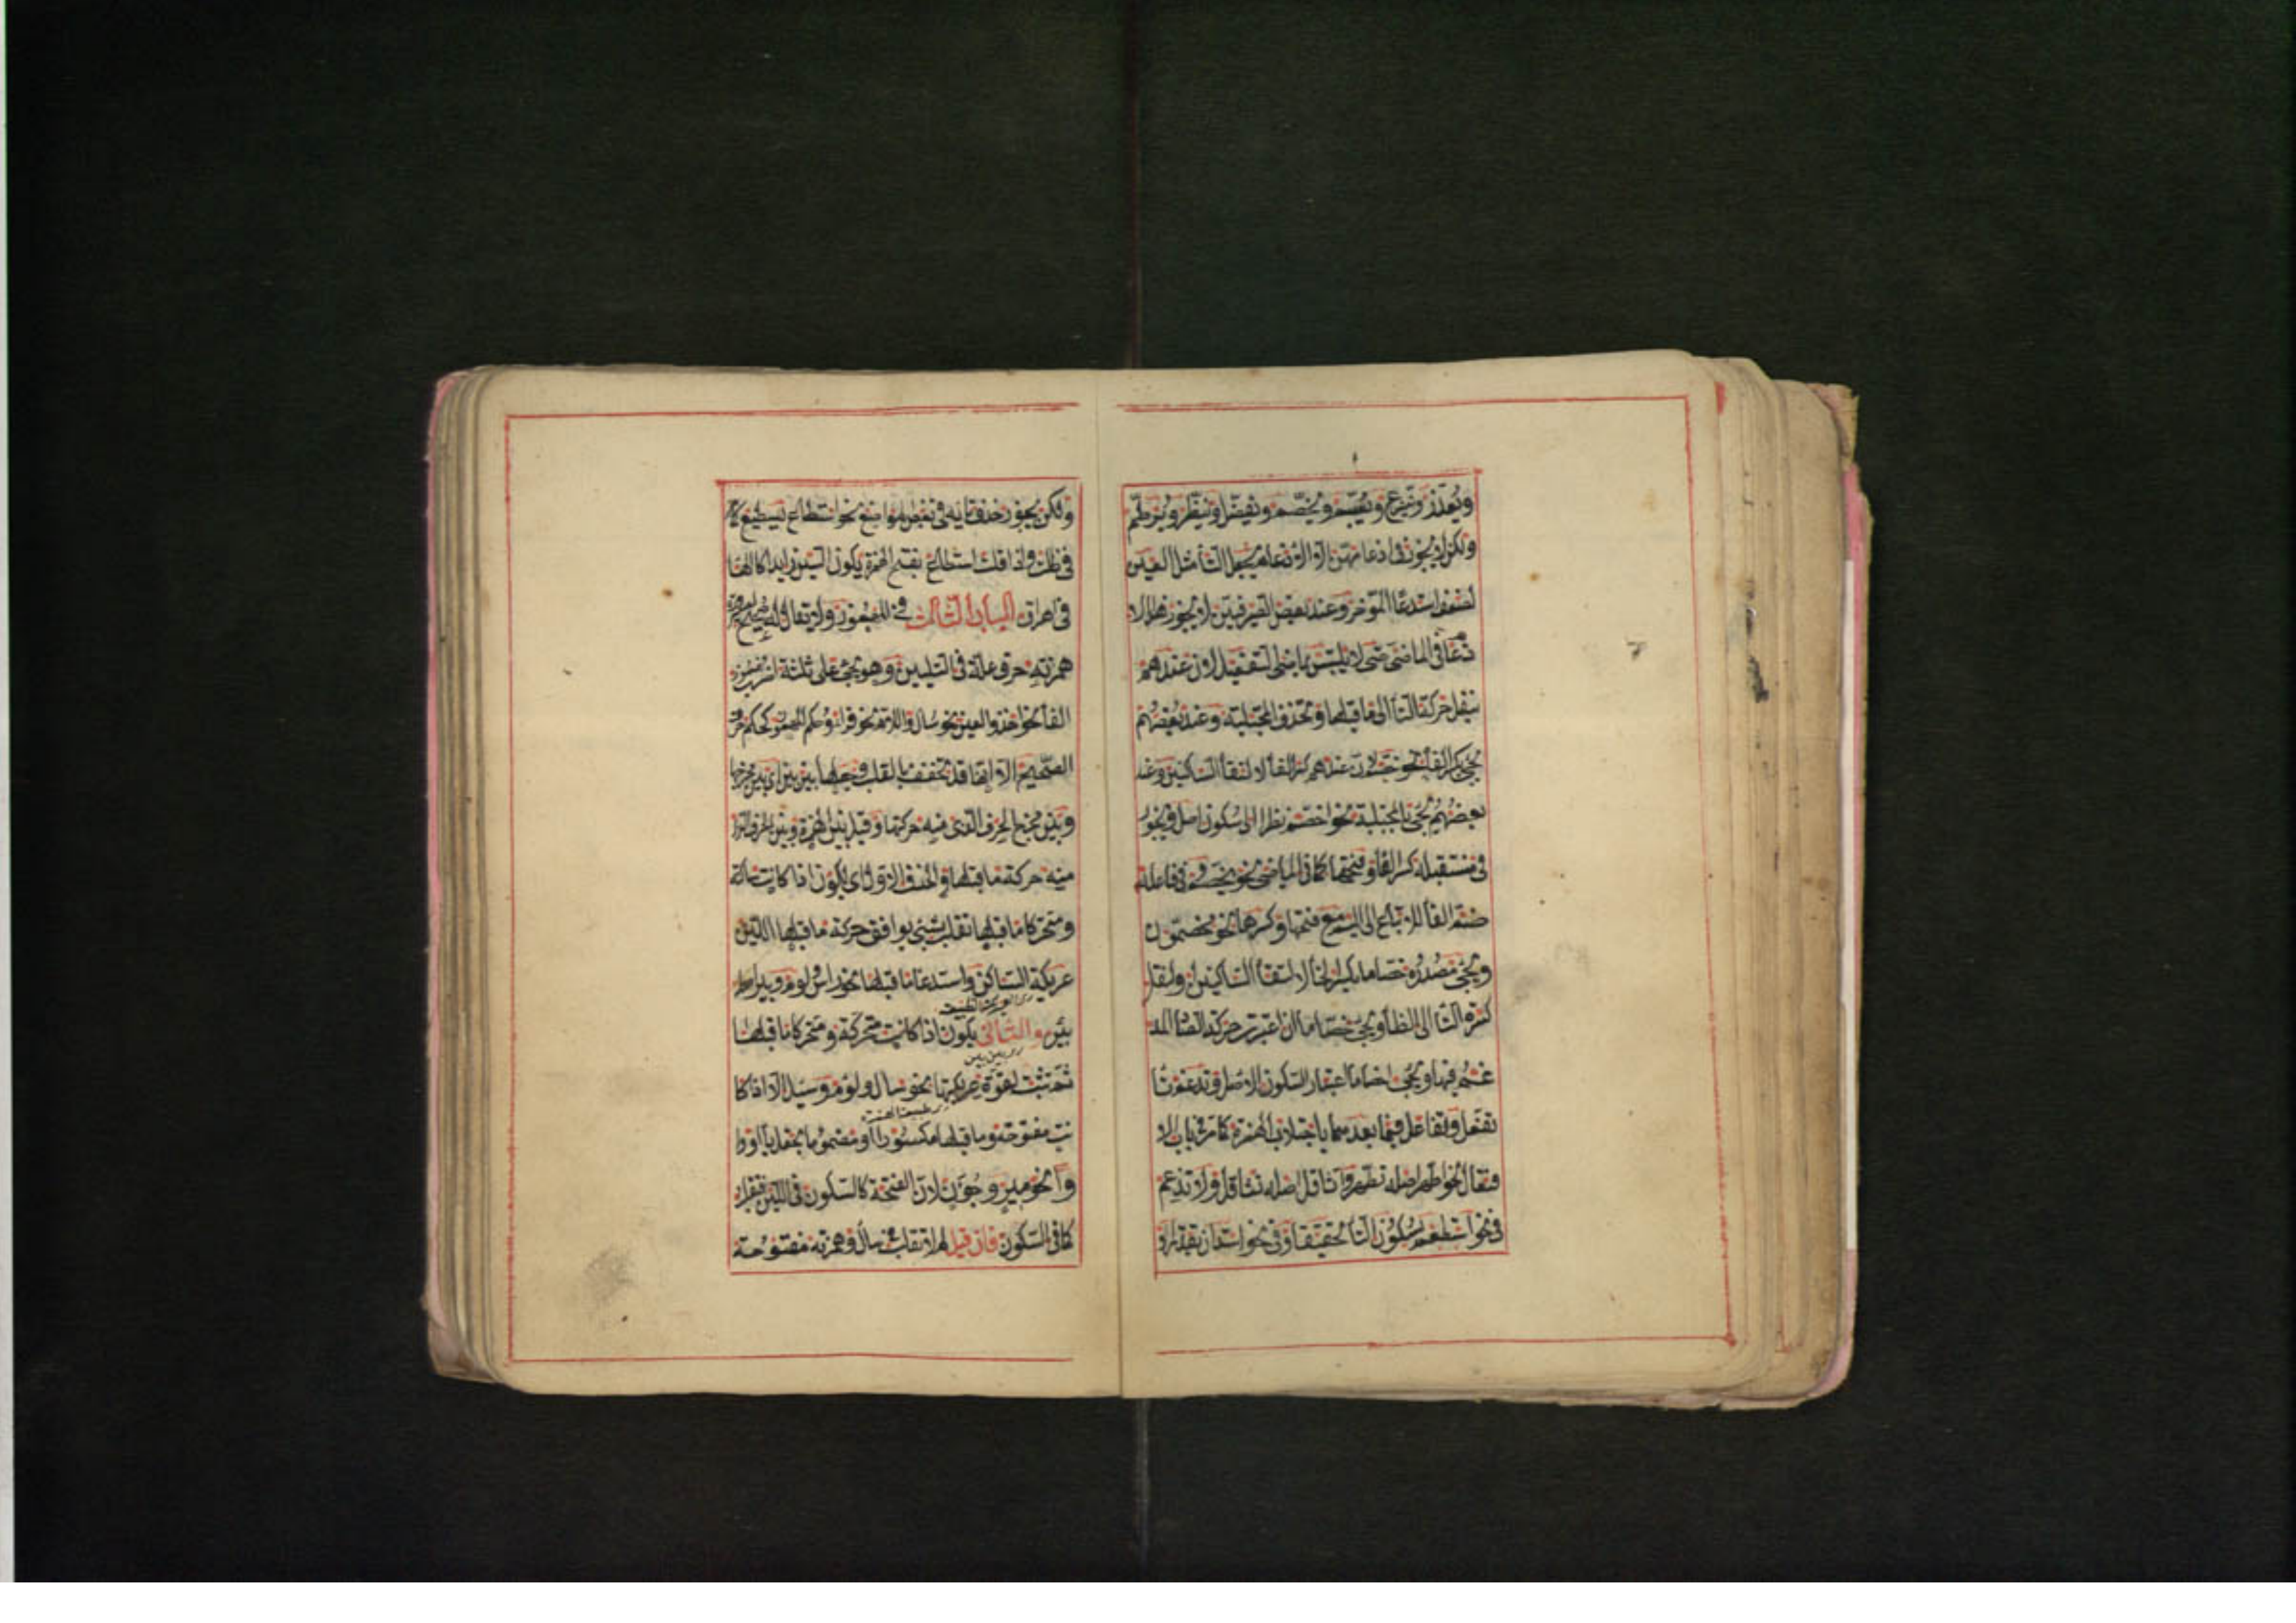 ويعذر وينزع ويبسم ويخصم وينضل وينظر ويلطم
ولكن لا يجوز في ادغامهن الا الادغام بجعل التأ مثل العين
لضعف استدعاء المؤخر وعند بعض الصرفيين لا يجوز هذا الا
دغام في الماضي حتى لا يلتبس بماضي التفعيل لان عندهم
ينقل حركة التأ الى ما قبلها وتحذف المجتلبة وعند بعضهم
يجئ بكسر الفأ نحو خصم لان عندهم كسر الفأ لالتقأ الساكنين وعند
بعضهم يجئ بالمجتلبة نحو اخصم نظرا الى سكون اصله ويجوز
في مستقبله كسر الفأ وفتحها كما في الماضي نحو يخصم وفي فاعله
ضم الفأ للاتباع الى الميم مع فتحها وكسرها نحو مخصمون
ويجئ مصدره خصاما بكسر الخأ لالتقأ الساكنين او لنقل
كسرة التأ الى الخأ ويجئ خصاما ان اعتبرت حركة الصاد المد
غم فيها ويجئ اخصاما اعتبار السكون الاصل وتدغم تأ
تفعل وتفاعل فيما بعدهما باجتلاب الهمزة كما مر في باب الا
فتعال نحو اطهر اصله تطهر واثاقل اصله تثاقل ولا تدغم
في نحو استطعم لسكون الطأ تحقيقا وفي نحو استدان تقديرا
ولكن يجوز حذف تائه في بعض المواضع نحو اسطاع يسطيع كما
في ظلت واذا قلت اسطاع بفتح الهمزة يكون السين زايدا كالها
في اهراق الباب الثالث في المهموز ولا يقال له صحيح لصيرورة
همزته حرف علة في التليين وهو يجئ على ثلثة اضرب مهموز
الفأ نحو اخذ والعين نحو سأل واللام نحو قرأ وحكم الهمزة كحكم حرف
الصحيح الا انها قد تخفف بالقلب وجعلها بين بين اي بين مخرجها
وبين مخرج الحرف الذي منه حركتها وقيل بين الهمزة وبين الحرف الذي
منه حركة ما قبلها والحذف الاول اي يكون اذا كانت ساكنة
ومتحركا ما قبلها تقلب بشئ يوافق حركة ما قبلها للين
عريكة الساكن واستدعاء ما قبلها نحو راس ولوم وبير اصله
بئر والثاني يكون اذا كانت متحركة ومتحركا ما قبلها
ثم تثبت لقوة عريكتها نحو سأل ولؤم وسئل الا اذا كا
نت مفتوحة وما قبلها مكسورا او مضموما بجعل يأ او وا
وا نحو مير وجون لان الفتحة كالسكون في اللين فتقلب
كما في السكون فان قيل لم لا تقلب في سأل وهمزته مفتوحة